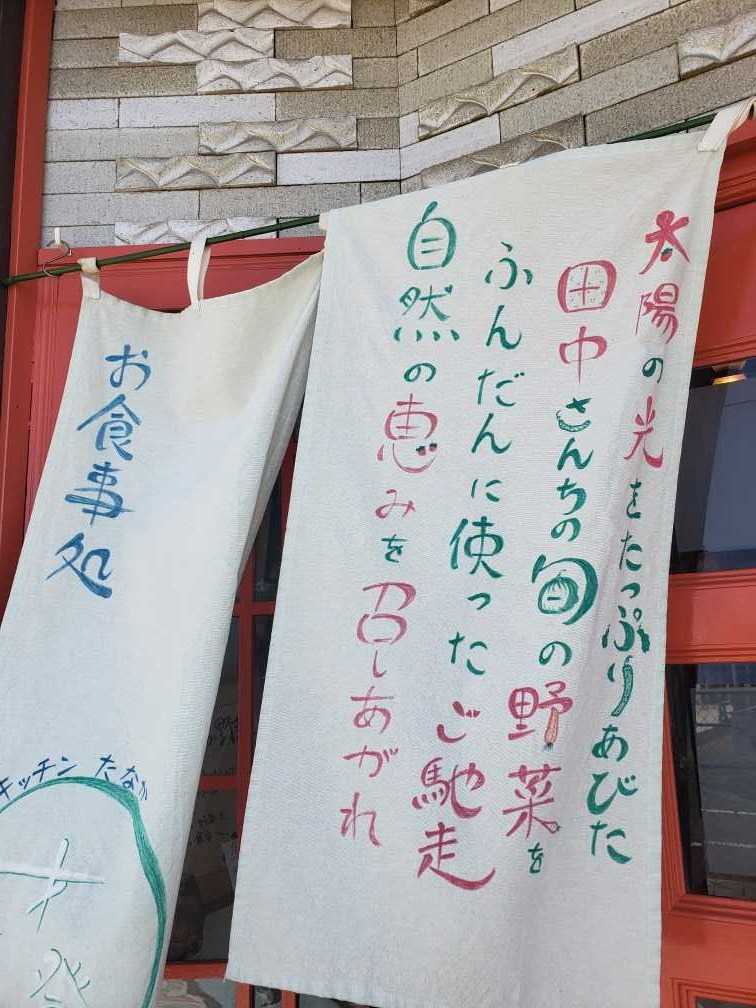 太陽の光をたっぷりあびた
田中さんちの旬の野菜を
ふんだんに使ったご馳走
自然の恵みを召しあがれ
お食事処
キッチン たなか